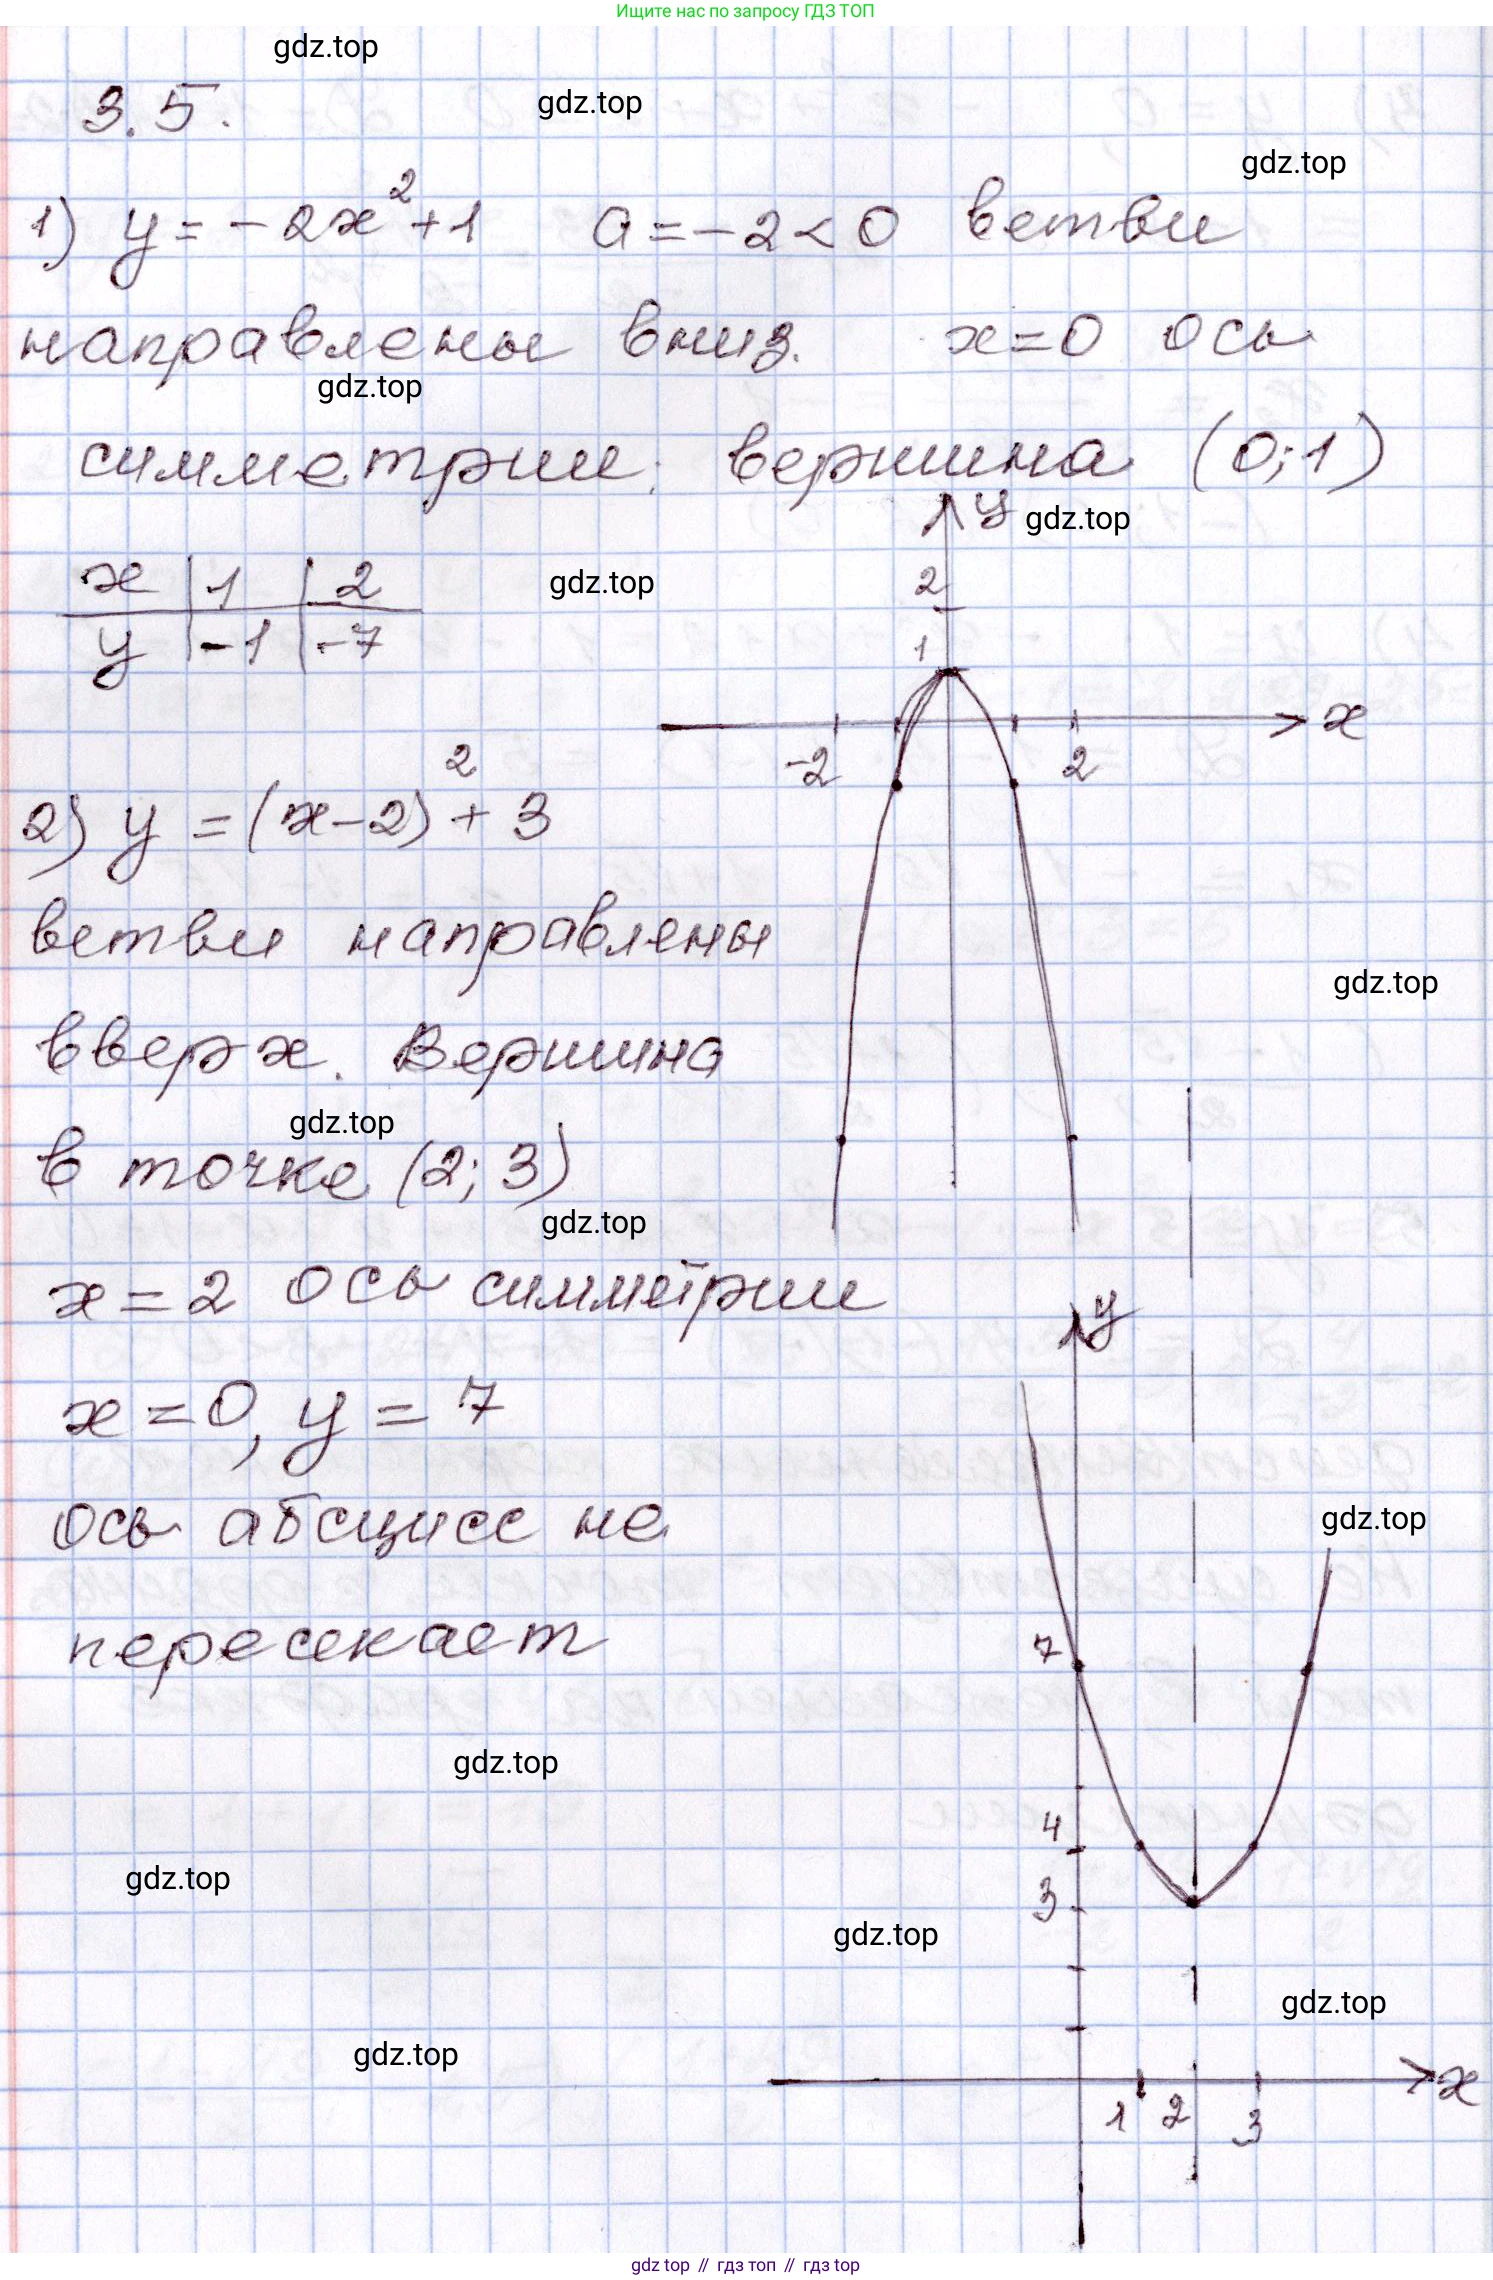 Ищите нас по запросу ГДЗ ТОП
gdz.top
3.5.
gdz.top
gdz.top
1) y = -2x² + 1 a = -2 < 0 ветви
направлены вниз. x = 0 ось
gdz.top
симметрии. вершина (0; 1)
y
gdz.top
x 1 2
y -1 -7
gdz.top
2
1
x
-2
2
2) y = (x - 2)² + 3
ветви направлены
gdz.top
вверх. Вершина
gdz.top
в точке (2; 3)
gdz.top
x = 2 ось симметрии
y
x = 0, y = 7
ось абсцисс не
gdz.top
пересекает
7
gdz.top
4
gdz.top
3
gdz.top
gdz.top
gdz.top
x
1 2 3
gdz top // гдз топ // гдз top